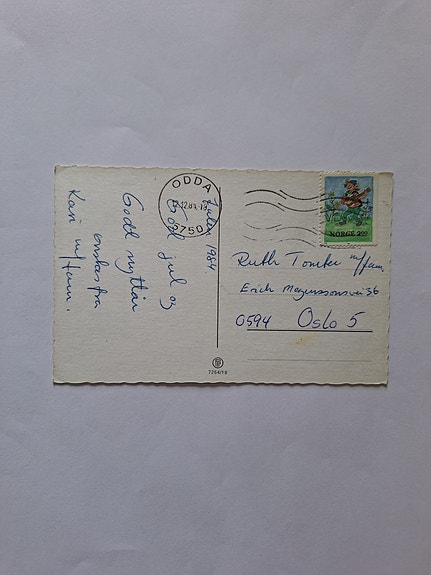 Julen 1984
God jul og
Godt nyttår
ønskes fra
Kari m/fam.
ODDA
12.84-19
5750
NORGE 2.00
Ruth m/fam.
Erich Mogenssønsvei 36
0594 Oslo 5
7264/18